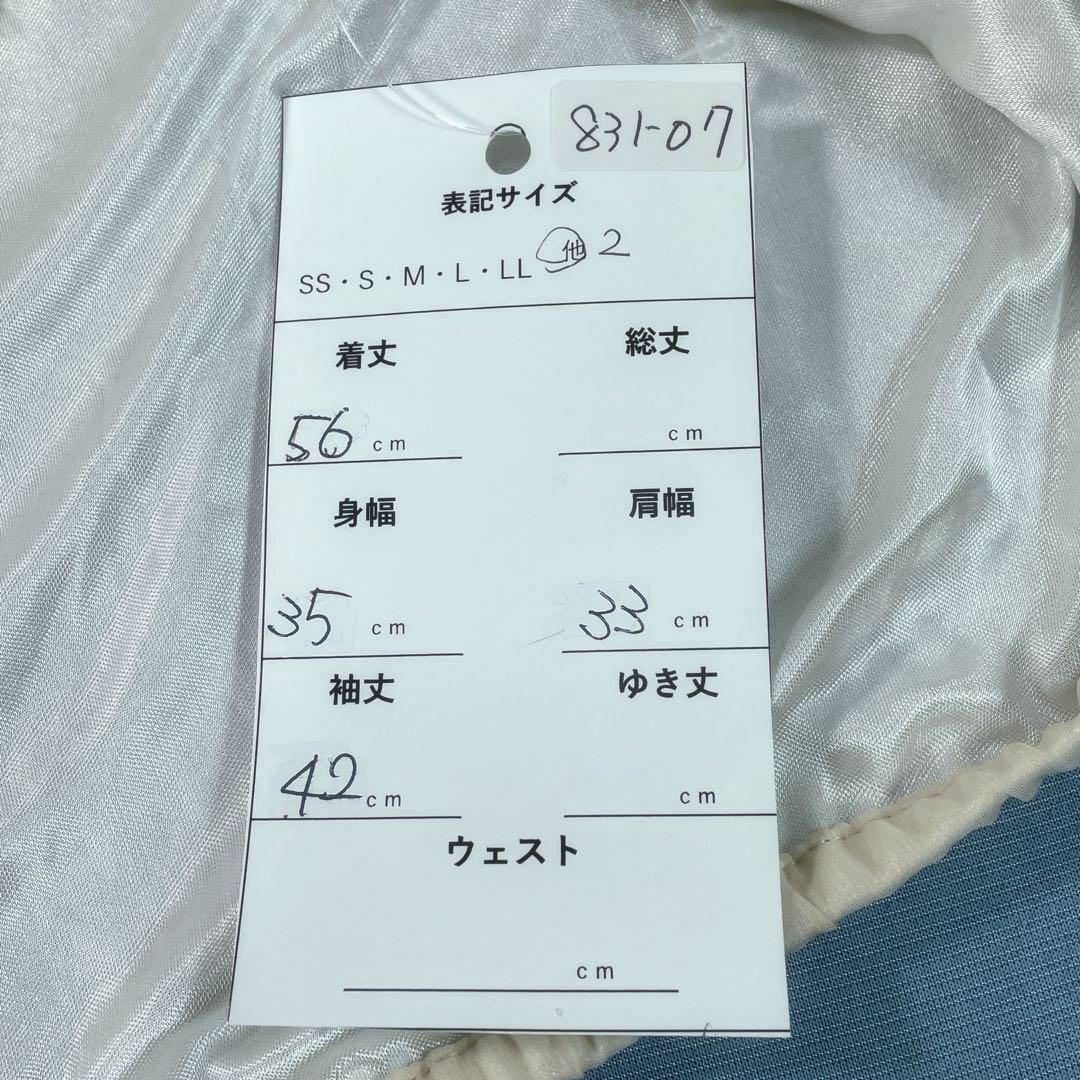 831-07
表記サイズ
SS・S・M・L・LL 他 2
着丈 総丈
56 cm cm
身幅 肩幅
35 cm 33 cm
袖丈 ゆき丈
42 cm cm
ウェスト
cm